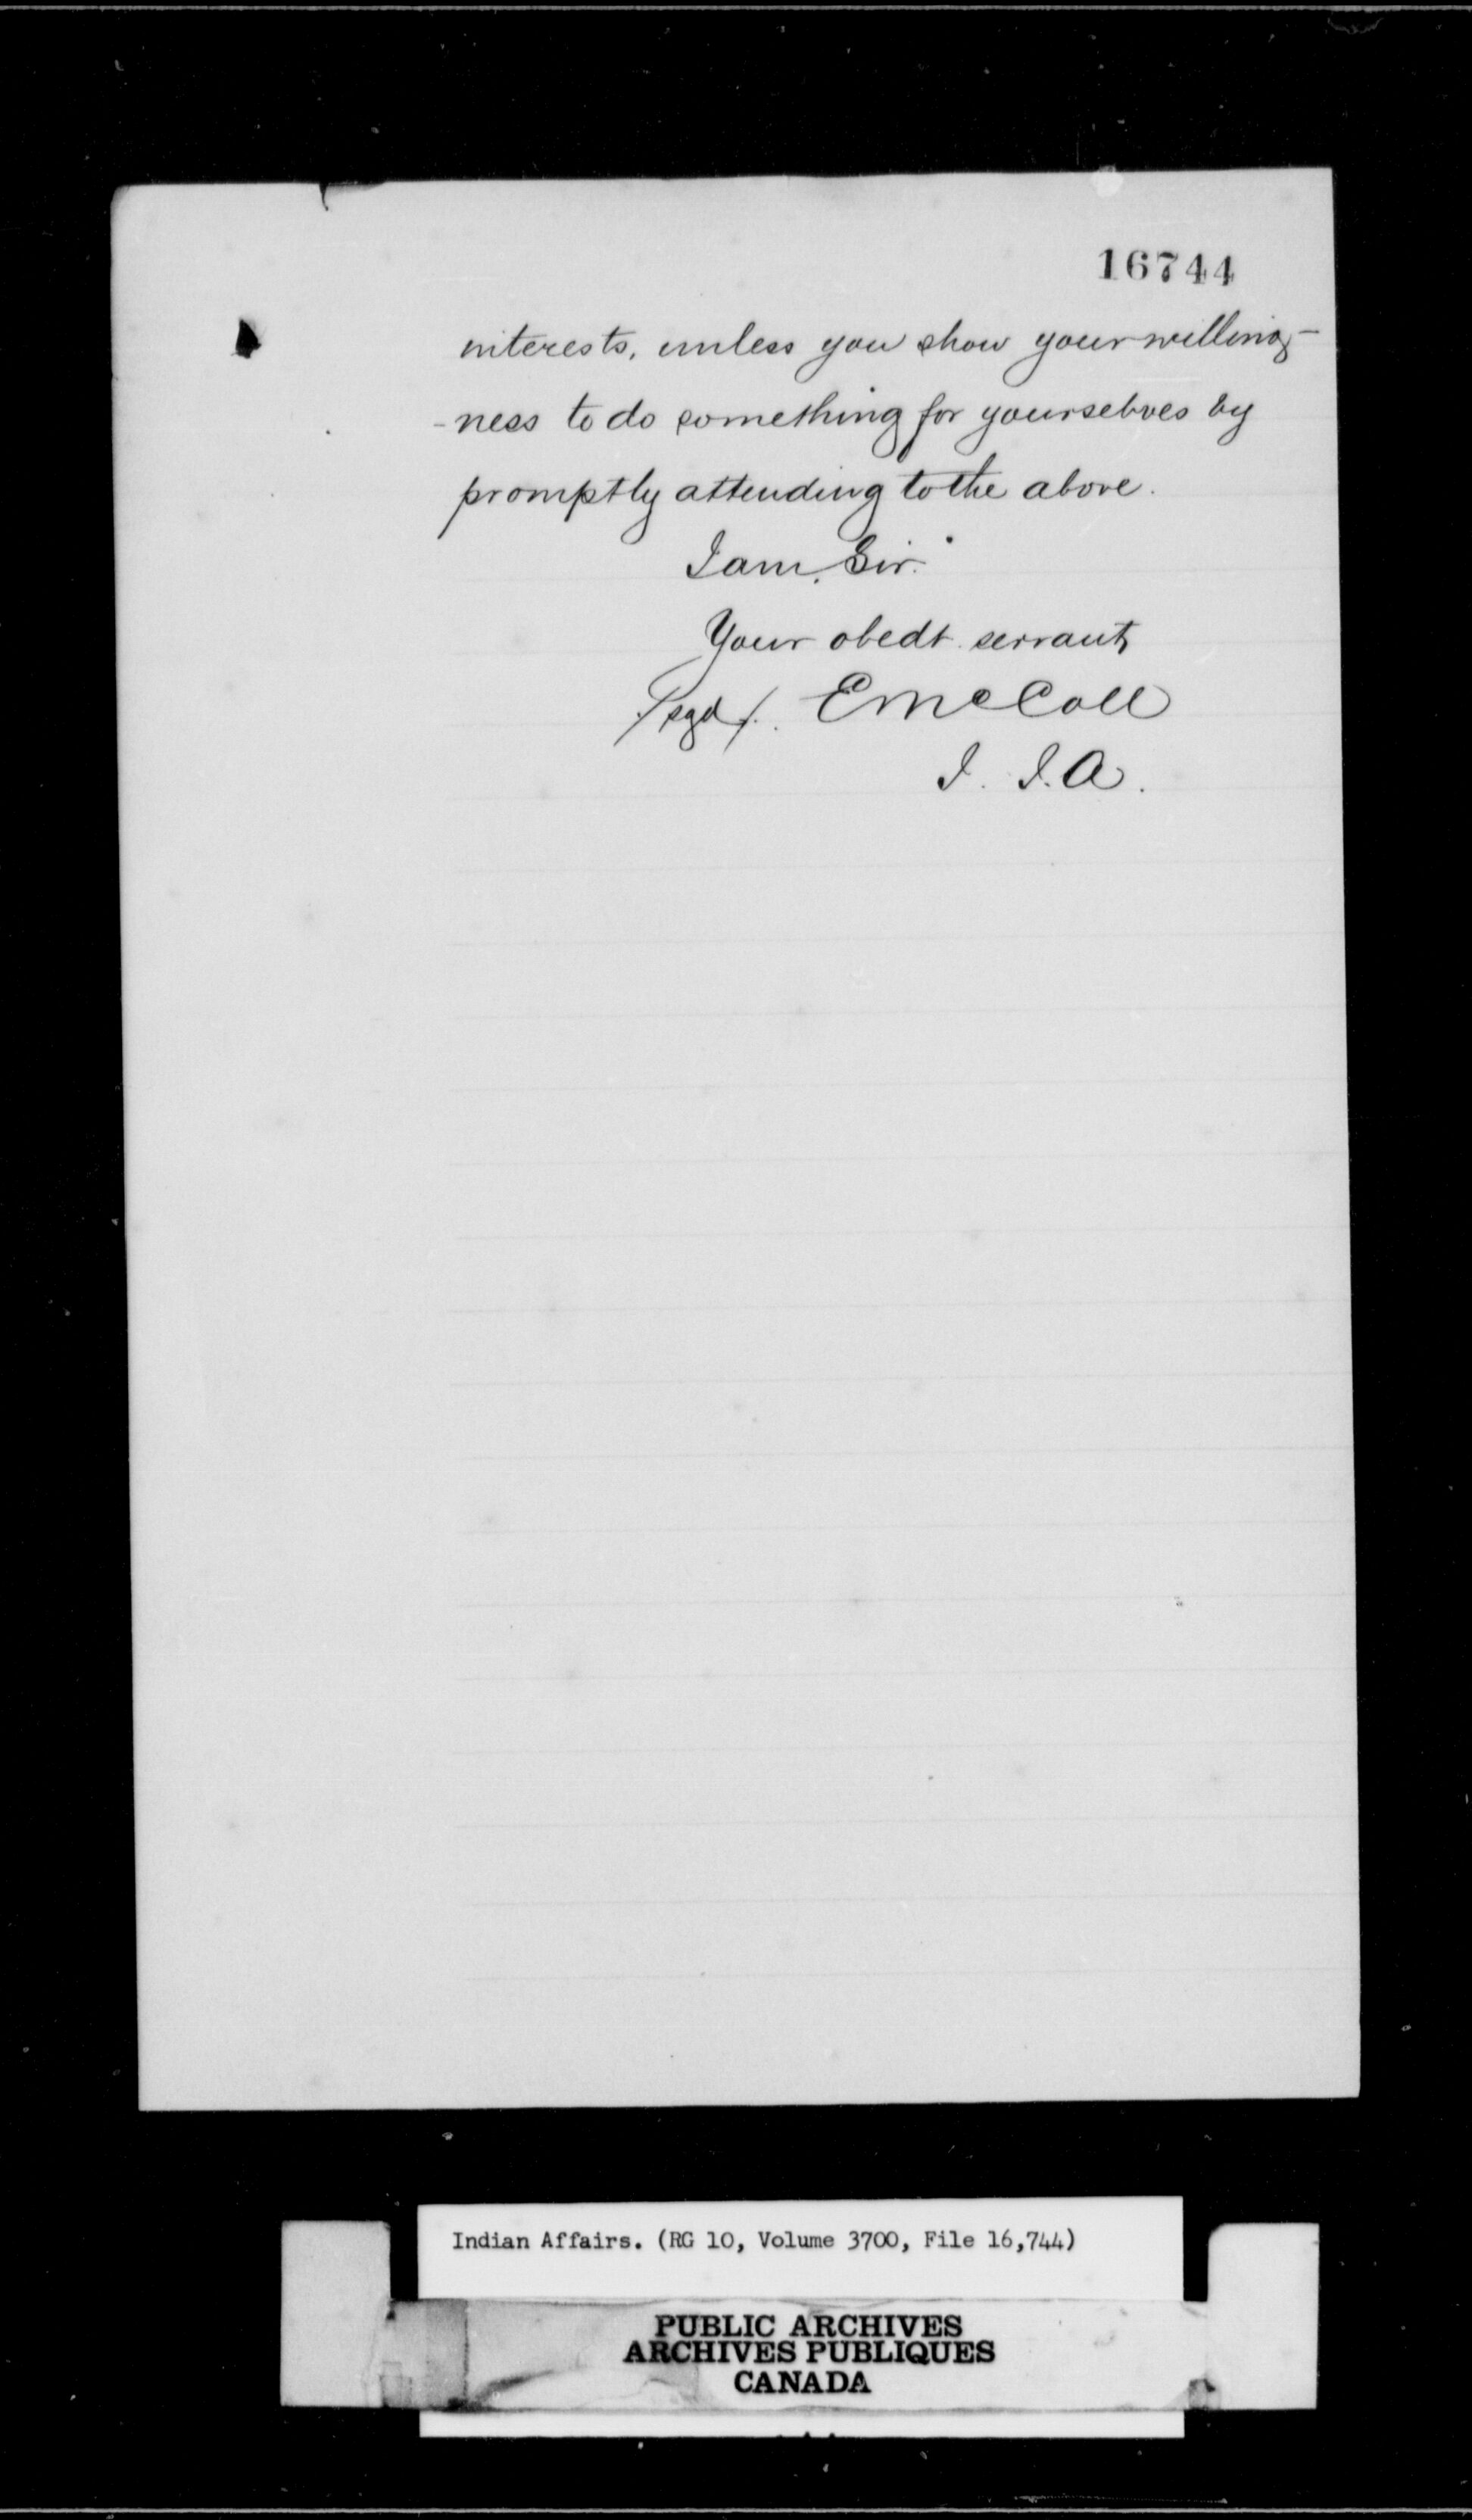 16744
interests, unless you show your willing-
-ness to do something for yourselves by
promptly attending to the above.
I am, Sir.
Your obedt. servant,
/sgd/. E McColl
I. I. A.
Indian Affairs. (RG 10, Volume 3700, File 16,744)
PUBLIC ARCHIVES
ARCHIVES PUBLIQUES
CANADA